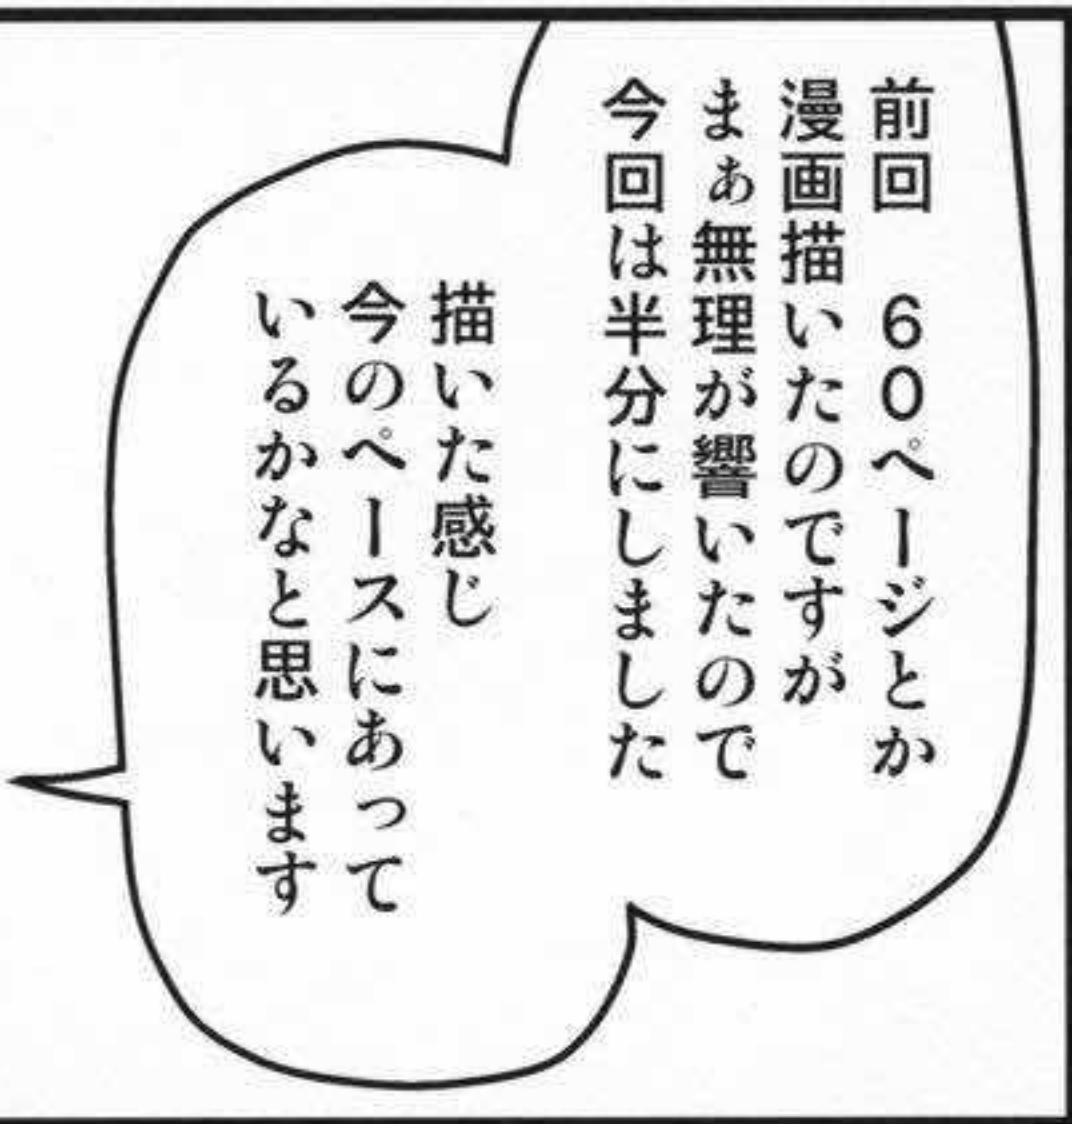 前回　60ページとか
漫画描いたのですが
まぁ無理が響いたので
今回は半分にしました
描いた感じ
今のペースにあって
いるかなと思います